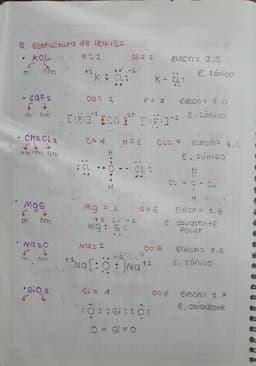 5. Estructura de Lewis
• KCl K=1 Cl=7 Elecn= 2.2
m nm +1 K : Cl : -1 K - Cl : E. Iónico
• CaF2 Ca= 2 F= 7 Elecn= 3.0
m nm [: F :]-1 [Ca]2+ [: F :]-1 E. Iónico
• CH2Cl2 C=4 H=1 Cl=7
nm nm nm E. Iónico
H H
: Cl : C : Cl : Cl - C - Cl
H H
• MgS Mg= 2 S=6 Elecn= 1.3
m nm +2 -2 E covalente
Mg : S : Polar
• Na2O Na=1 O=6 Elecn= 2.6
m nm +1 Na [: O :]-2 Na+1 E. Iónico
• SiO2 Si= 4 O=6 Elecn= 1.7
: O : : Si : : O : E. covalente
O = Si = O